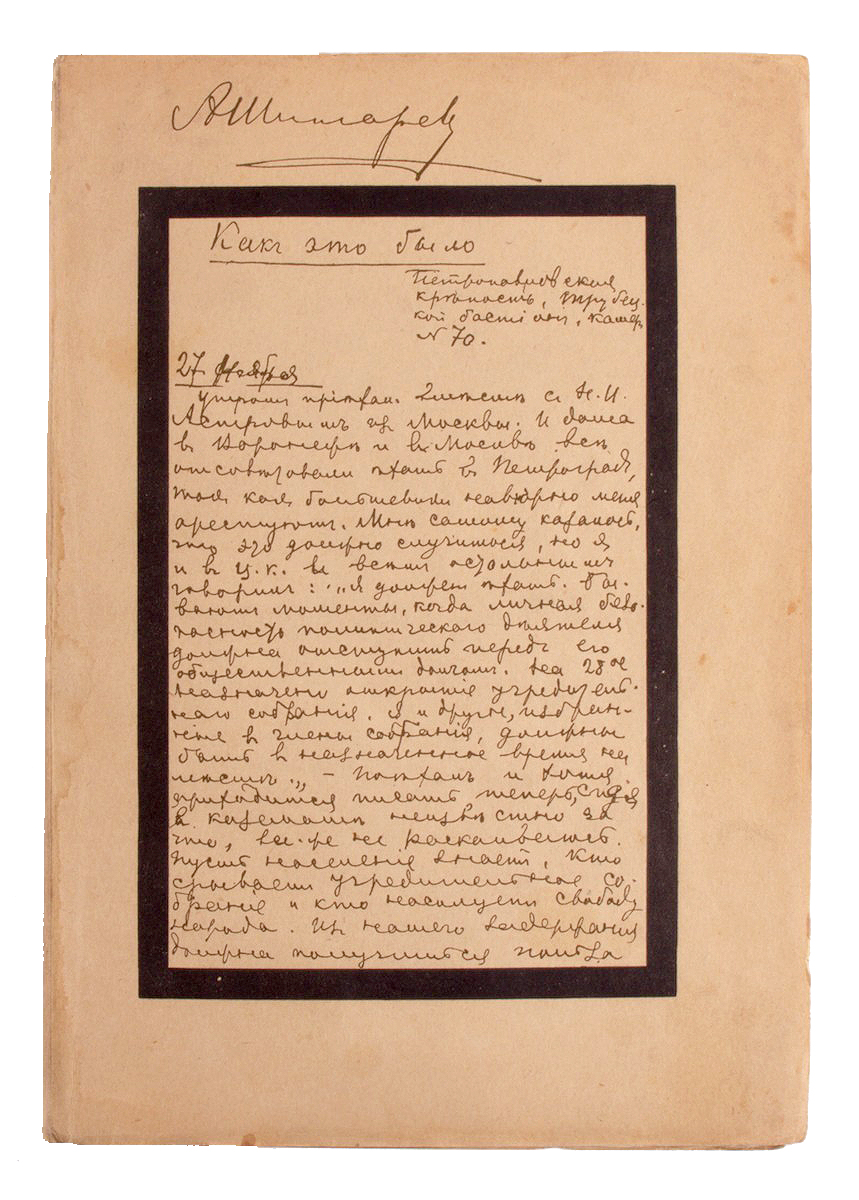 АШингарев
Какъ это было
Петропавловская
крѣпость, Трубец-
кой бастіонъ, камера
N 70.
27 Ноября
Утромъ пріѣхали вмѣстѣ съ Н. И.
Астровымъ изъ Москвы. И дома
въ Воронежѣ и въ Москвѣ всѣ
отсовѣтовали ѣхать въ Петроградъ,
такъ какъ большевики навѣрно меня
арестуютъ. Мнѣ самому казалось,
что это должно случиться, но я
и въ Ц.К. и всѣмъ остальнымъ
говорилъ: „я долженъ ѣхать. Бы-
ваютъ моменты, когда личная безо-
пасность политическаго дѣятеля
должна отступить передъ его
общественнымъ долгомъ. На 28ое
назначено открытіе учредитель-
наго собранія. я и другіе, избран-
ные въ члены собранія, должны
быть въ назначенное время на
мѣстѣ.„ – Поѣхалъ и хотя
приходится писать теперь, сидя
въ казематѣ неизвѣстно за
что, все-же не раскаиваюсь.
Пусть населеніе знаетъ, кто
срываетъ учредительное со-
браніе и кто насилуетъ свободу
народа. Изъ нашего задержанія
должна получиться польза